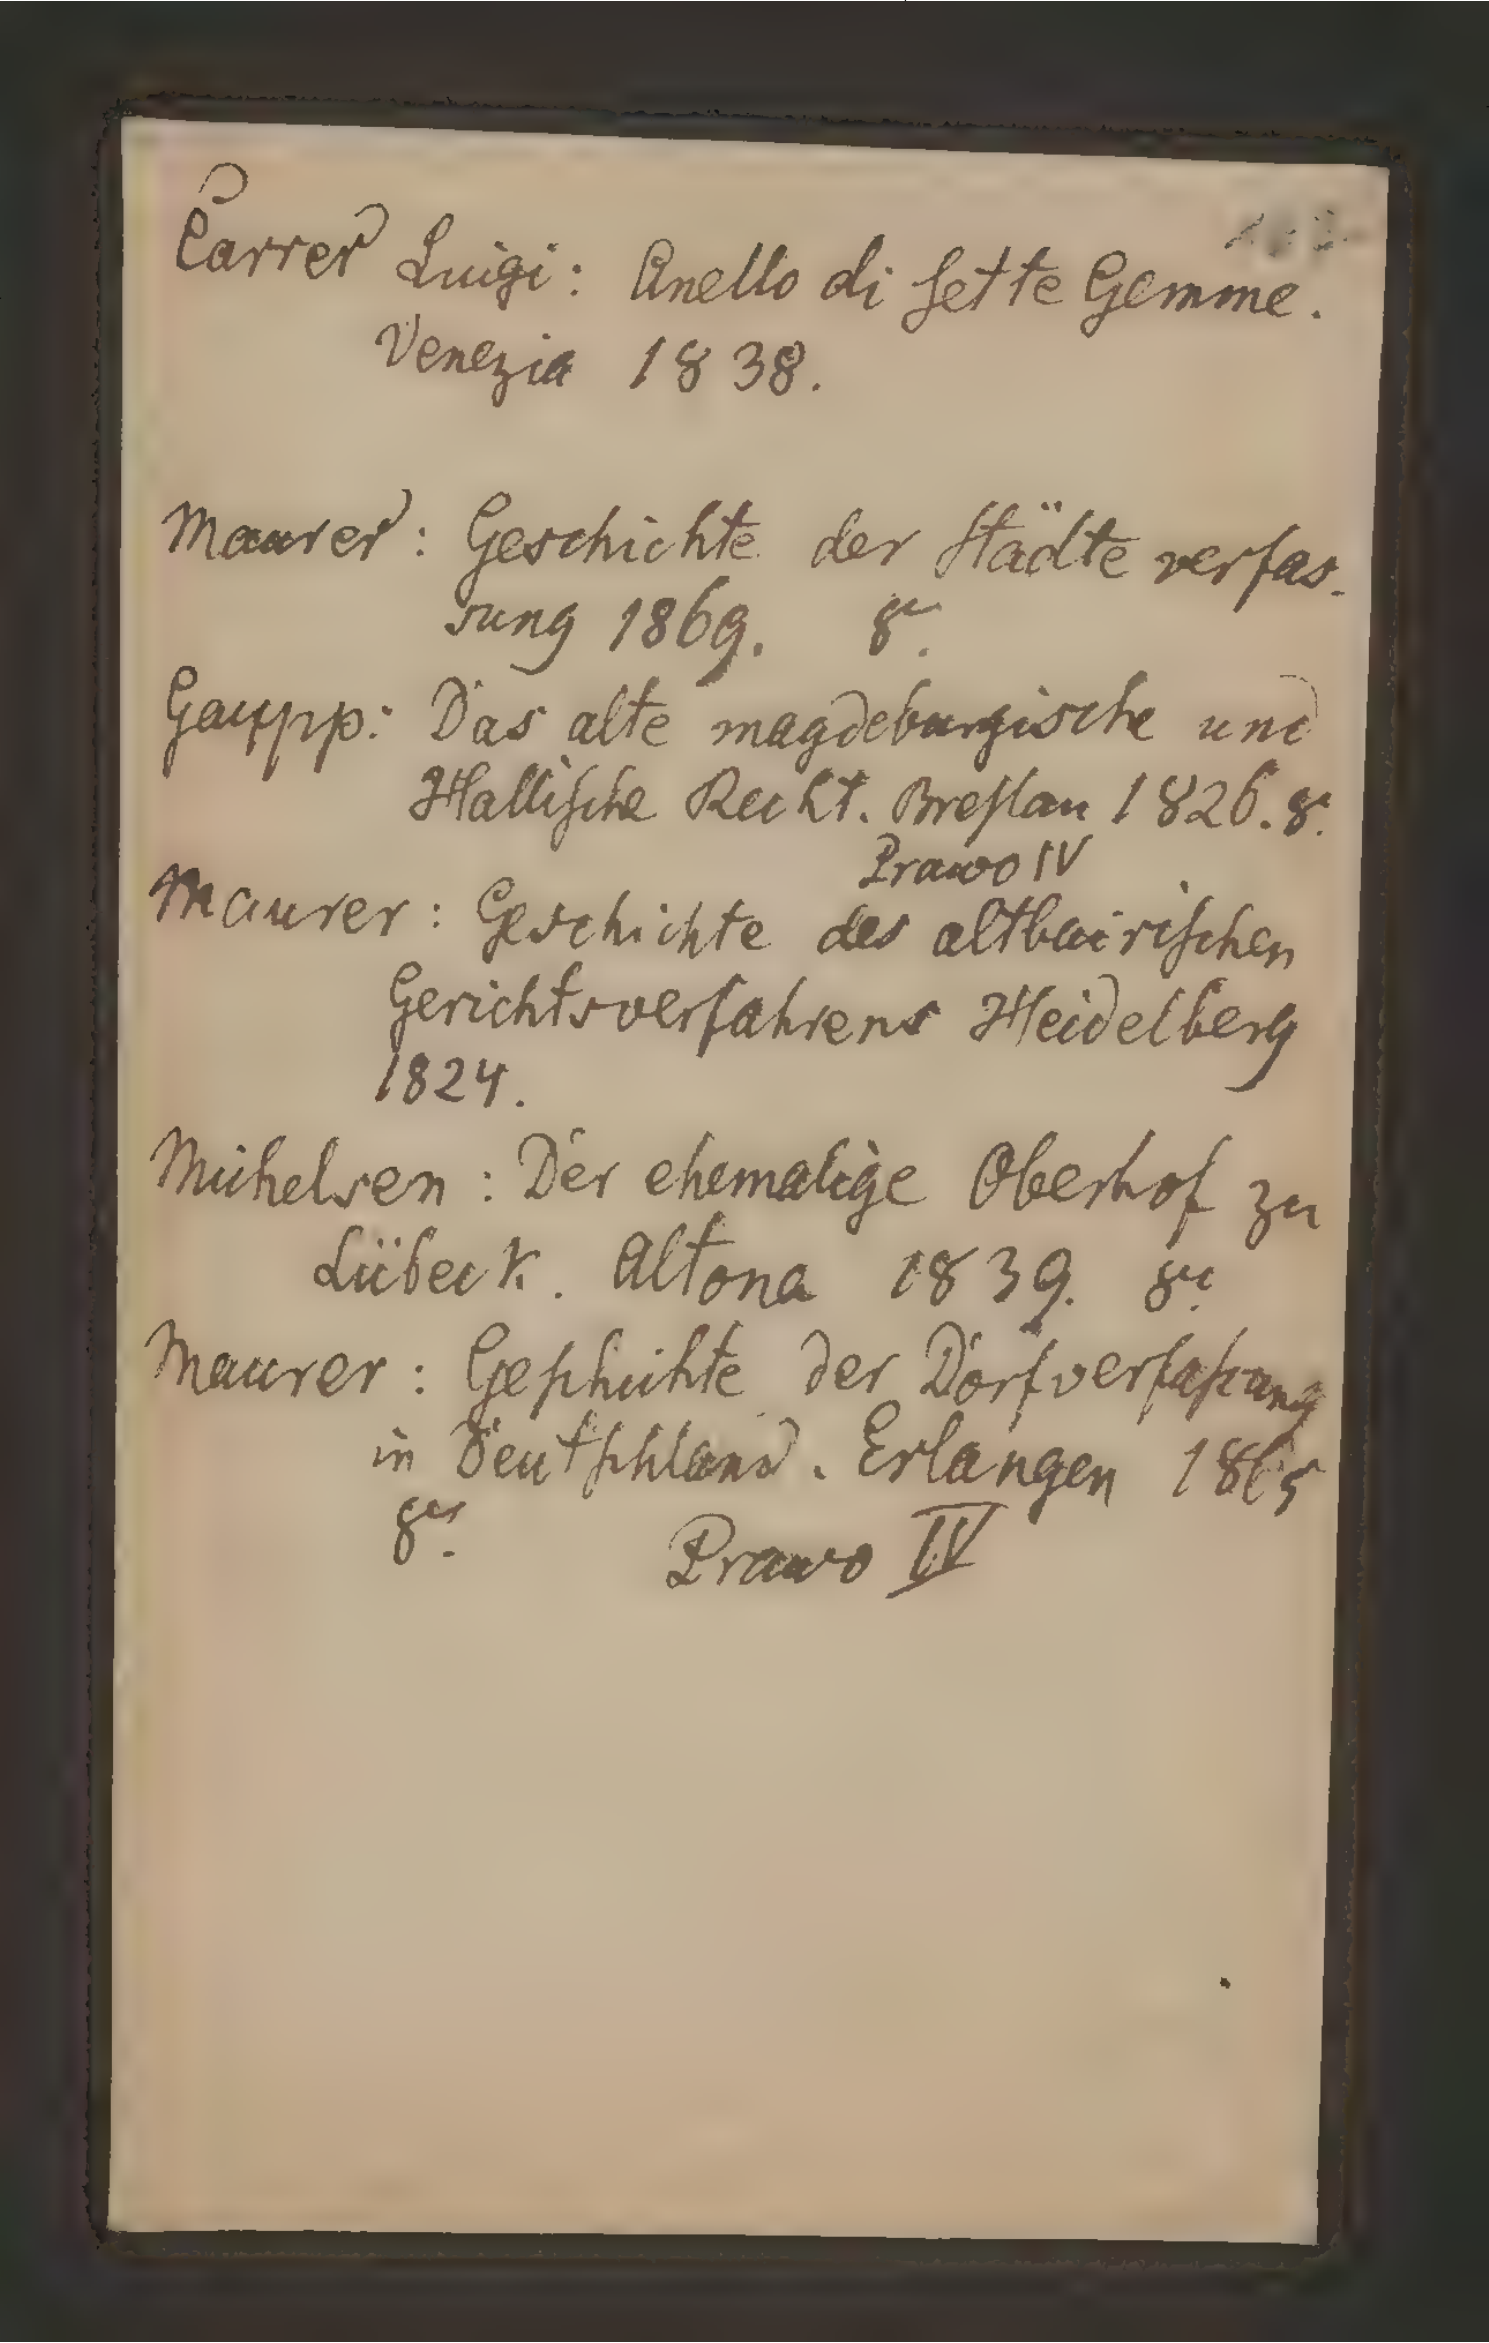 Carrer Luigi: Anello di sette Gemme.
Venezia 1838.
Maurer: Geschichte der Städteverfas-
sung 1869. 8º.
Gaupp: Das alte magdeburgische und
Hallische Recht. Breslau 1826. 8º.
Prawo IV
Maurer: Geschichte des altbairischen
Gerichtsverfahrens Heidelberg
1824.
Michelsen: Der ehemalige Oberhof zu
Lübeck. Altona 1839. 8º.
Maurer: Geschichte der Dorfverfassung
in Deutschland. Erlangen 1865
8º. Prawo IV